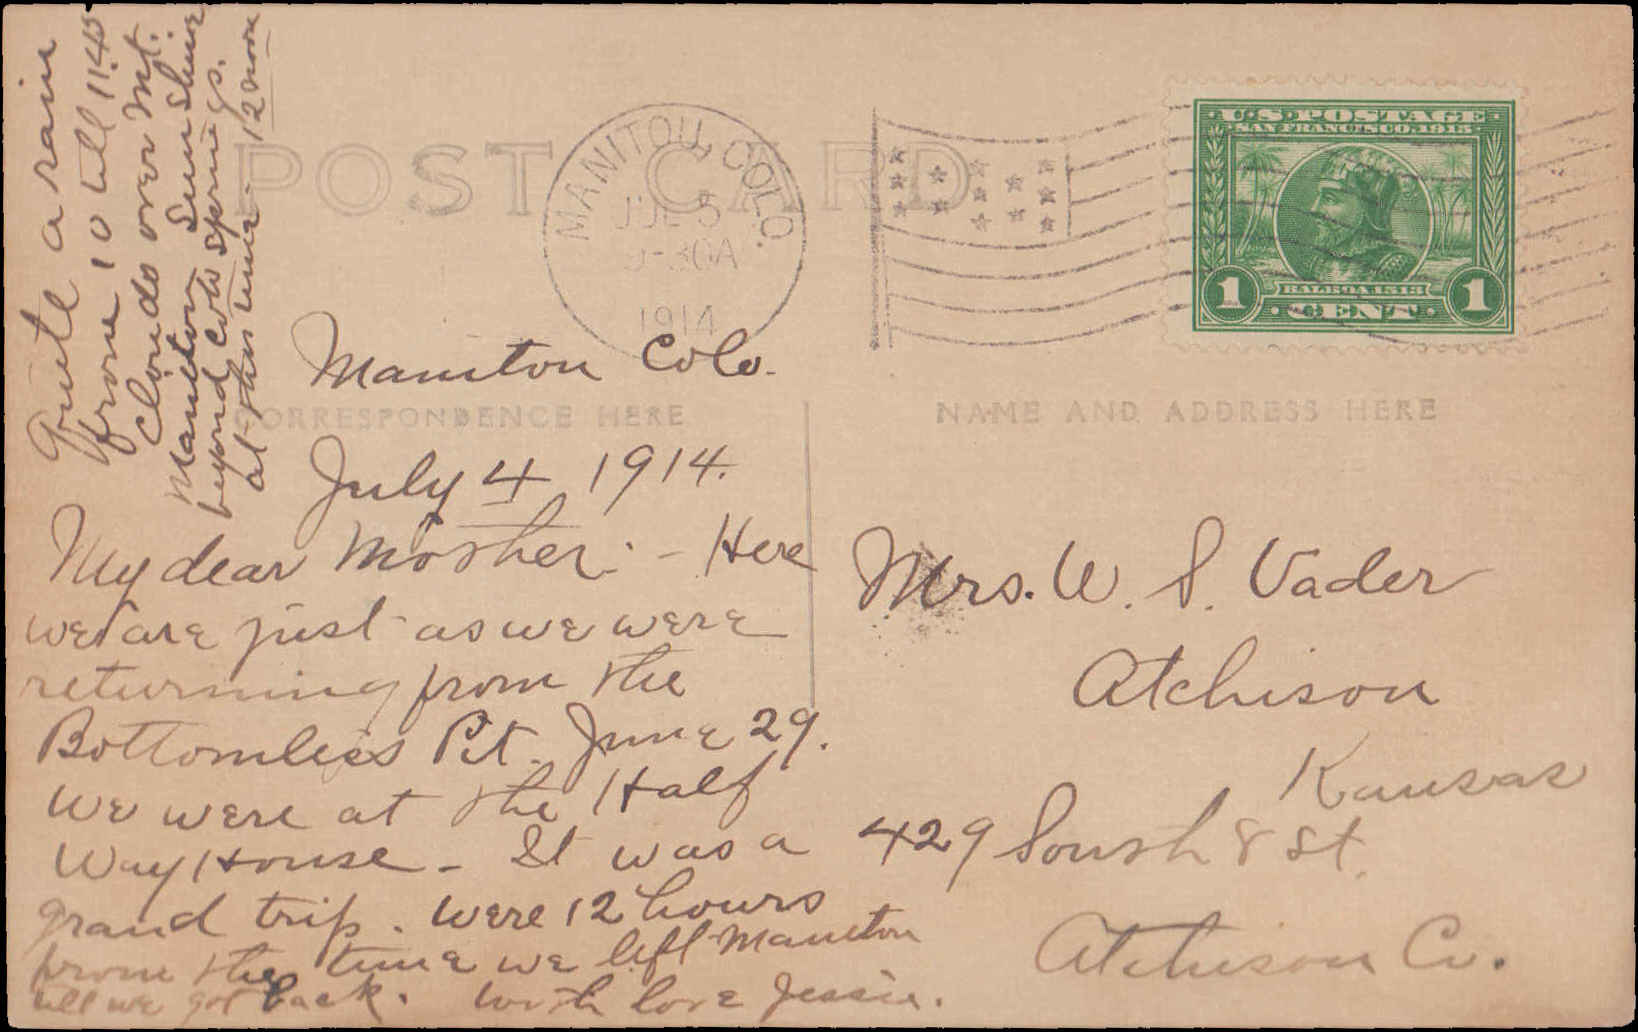 Quite a rain
from 10 till 11:45
Clouds over Mt.
Manitou Sun shine
beyond Colo Springs.
at this time - 12 noon
POST CARD
MANITOU, COLO.
JUL 5
9-30A
1914
U.S. POSTAGE
SAN FRANCISCO, 1915
BALBOA 1513
1 CENT 1
Manitou Colo.
CORRESPONDENCE HERE
NAME AND ADDRESS HERE
July 4 1914.
My dear Mother: - Here
we are just as we were
returning from the
Bottomless Pit. June 29.
We were at the Half
Way House - It was a
grand trip. Were 12 hours
from the time we left Manitou
till we got back. With love Jessie.
Mrs. W. S. Vader
Atchison
Kansas
429 South 8 St.
Atchison Co.